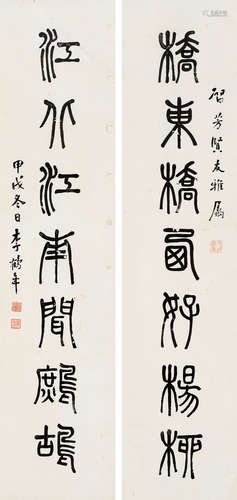 智芳賢友雅属
橋東橋西好楊柳
江北江南聞鷓鴣
甲戌冬日李鶴年